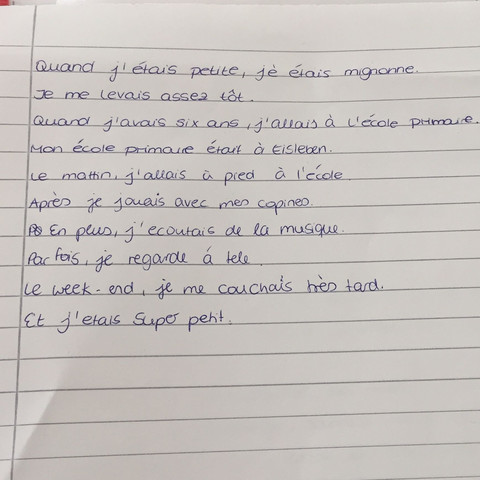 Quand j'étais petite, jè étais mignonne.
Je me levais assez tôt.
Quand j'avais six ans, j'allais à l'école primaire.
Mon école primaire était à Eisleben.
Le mattin, j'allais à pied à l'école.
Après je jouais avec mes copines.
En plus, j'ecoutais de la musique.
Parfois, je regarde á tele.
Le week-end, je me couchais très tard.
Et j'etais super petit.